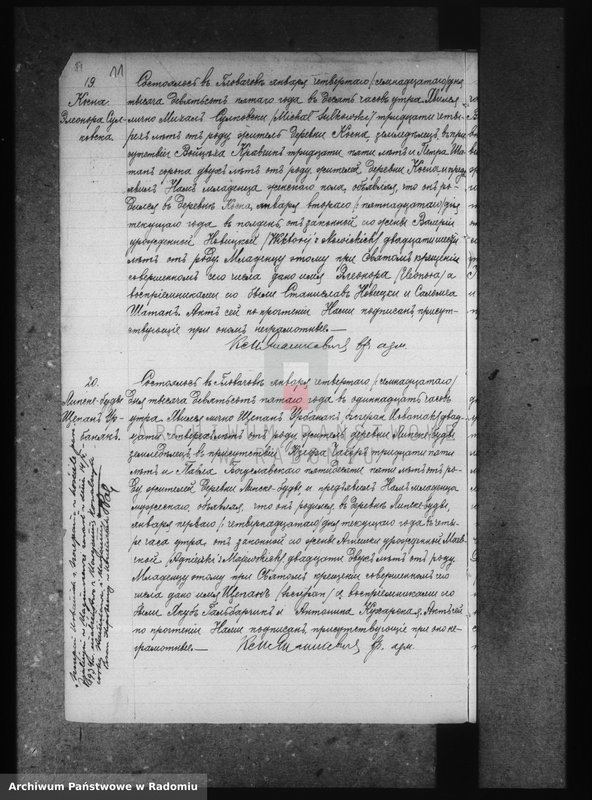 19.
Косна.
Элеонора Сул-
ковска.
Состоялось въ Гловачовѣ января четвертаго /семнадцатаго/ дня
тысяча девятьсотъ пятаго года въ десять часовъ утра. Явился
лично Михаилъ Сулковски /Michał Sułkowski/ тридцати четы-
рехъ лѣтъ отъ роду, житель деревни Косна, земледѣлецъ, въ при-
сутствіи Войцѣха тридцати пяти лѣтъ и Петра Ша-
танъ сорока двухъ лѣтъ отъ роду, жителей деревни Косна и предъ-
явилъ Намъ младенца женскаго пола, объявляя, что онъ ро-
дился въ деревнѣ Косна, января втораго /пятнадцатаго/ дня
текущаго года въ полдень отъ законной его жены Валеріи
урожденной Новицкой двадцати шести
лѣтъ отъ роду. Младенцу этому при Святомъ крещеніи
совершенномъ сего числа дано имя Элеонора /Eleonora/ а
воспріемниками его были Станиславъ Новицки и Саломея
Шатанъ. Актъ сей по прочтеніи Нами подписанъ, присут-
ствующіе при ономъ неграмотные.—
20.
Липске-Буды
Щепанъ Ур-
банякъ.
Состоялось въ Гловачовѣ января четвертаго /семнадцатаго/
дня тысяча девятьсотъ пятаго года въ одинадцать часовъ
утра. Явился лично Щепанъ Урбанякъ /Szczepan Urbaniak/ двад-
цати четырехъ лѣтъ отъ роду, житель деревни Липске-Буды
земледѣлецъ въ присутствіи Юзефа тридцати пяти
лѣтъ и Павла пятидесяти пяти лѣтъ отъ ро-
ду, жителей деревни Липске-Буды, и предъявилъ Намъ младенца
мужескаго, объявляя, что онъ родился въ деревнѣ Липске-Буды,
января перваго /четырнадцатаго/ дня текущаго года въ четы-
ре часа утра отъ законной его жены Агнешки урожденной Маев-
ской двадцати двухъ лѣтъ отъ роду.
Младенцу этому при Святомъ крещеніи совершенномъ сего
числа дано имя Щепанъ /Szczepan/ а воспріемниками его
были Якубъ и Антонина Актъ сей
по прочтеніи Нами подписанъ, присутствующіе при ономъ не-
грамотные.—
ARCHIWUM PAŃSTWOWE
W RADOMIU
Archiwum Państwowe w Radomiu